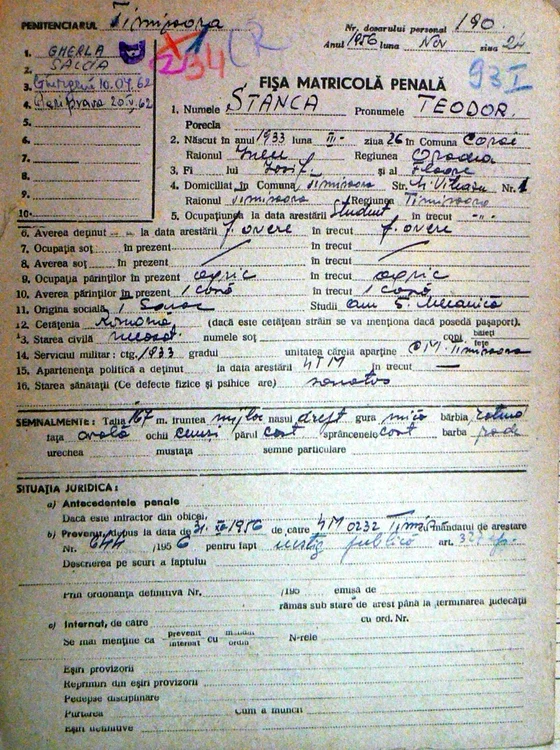 PENITENCIARUL Timișoara
Nr. dosarului personal 190
Anul 1956 luna Nov ziua 24
1. GHERLA
2. SALCIA
3. 10.04.62
4. 20.V.62
5.
6.
7.
8.
9.
10.
234 CR
93 I
FIȘA MATRICOLĂ PENALĂ
1. Numele STANCA Pronumele TEODOR.
Porecla
2. Născut în anul 1933 luna III- ziua 26 în Comuna
Raionul Ineu Regiunea Oradea
3. Fi lui Iosif și al
4. Domiciliat în Comuna Timișoara Str. Nr. 1
Raionul Timișoara Regiunea Timișoara
5. Ocupațiunea la data arestării Student în trecut -"-
6. Averea deținut -"- la data arestării f. avere în trecut f. avere
7. Ocupația soț în prezent în trecut
8. Averea soț în prezent în trecut
9. Ocupația părinților în prezent agric în trecut agric
10. Averea părinților în prezent 1 casă în trecut 1 casă
11. Origina socială Studii Mecanică
12. Cetățenia Română (dacă este cetățean străin se va menționa dacă posedă pașaport).
13. Starea civilă necăsăt. numele soț copii băieți fete
14. Serviciul militar: ctg. 1933 gradul unitatea căreia aparține CM. Timișoara
15. Apartenența politică a deținut la data arestării UTM în trecut —
16. Starea sănătății (Ce defecte fizice și psihice are) sanatos
SEMNALMENTE: Talia 167 m. fruntea mijloc nasul drept gura mică bărbia
fața ovală ochii părul cast sprâncenele cast barba rade
urechea mustața semne particulare
SITUAȚIA JURIDICA:
a) Antecedentele penale
Dacă este infractor din obicei,
b) Prevenit, depus la data de 1956 de către UM 0232 mandatul de arestare
Nr. /1956 pentru fapt publică art. 327
Descrierea pe scurt a faptului
Prin ordonanța definitivă Nr. /195 emisă de
rămas sub stare de arest până la terminarea judecății
c) Internat, de către cu ord. Nr.
Se mai menține ca prevenit internat cu mandat ordin N-rele
Eșiri provizorii
Reprimiri din eșiri provizorii
Pedepse disciplinare
Purtarea Cum a muncit
Eșiri definitive